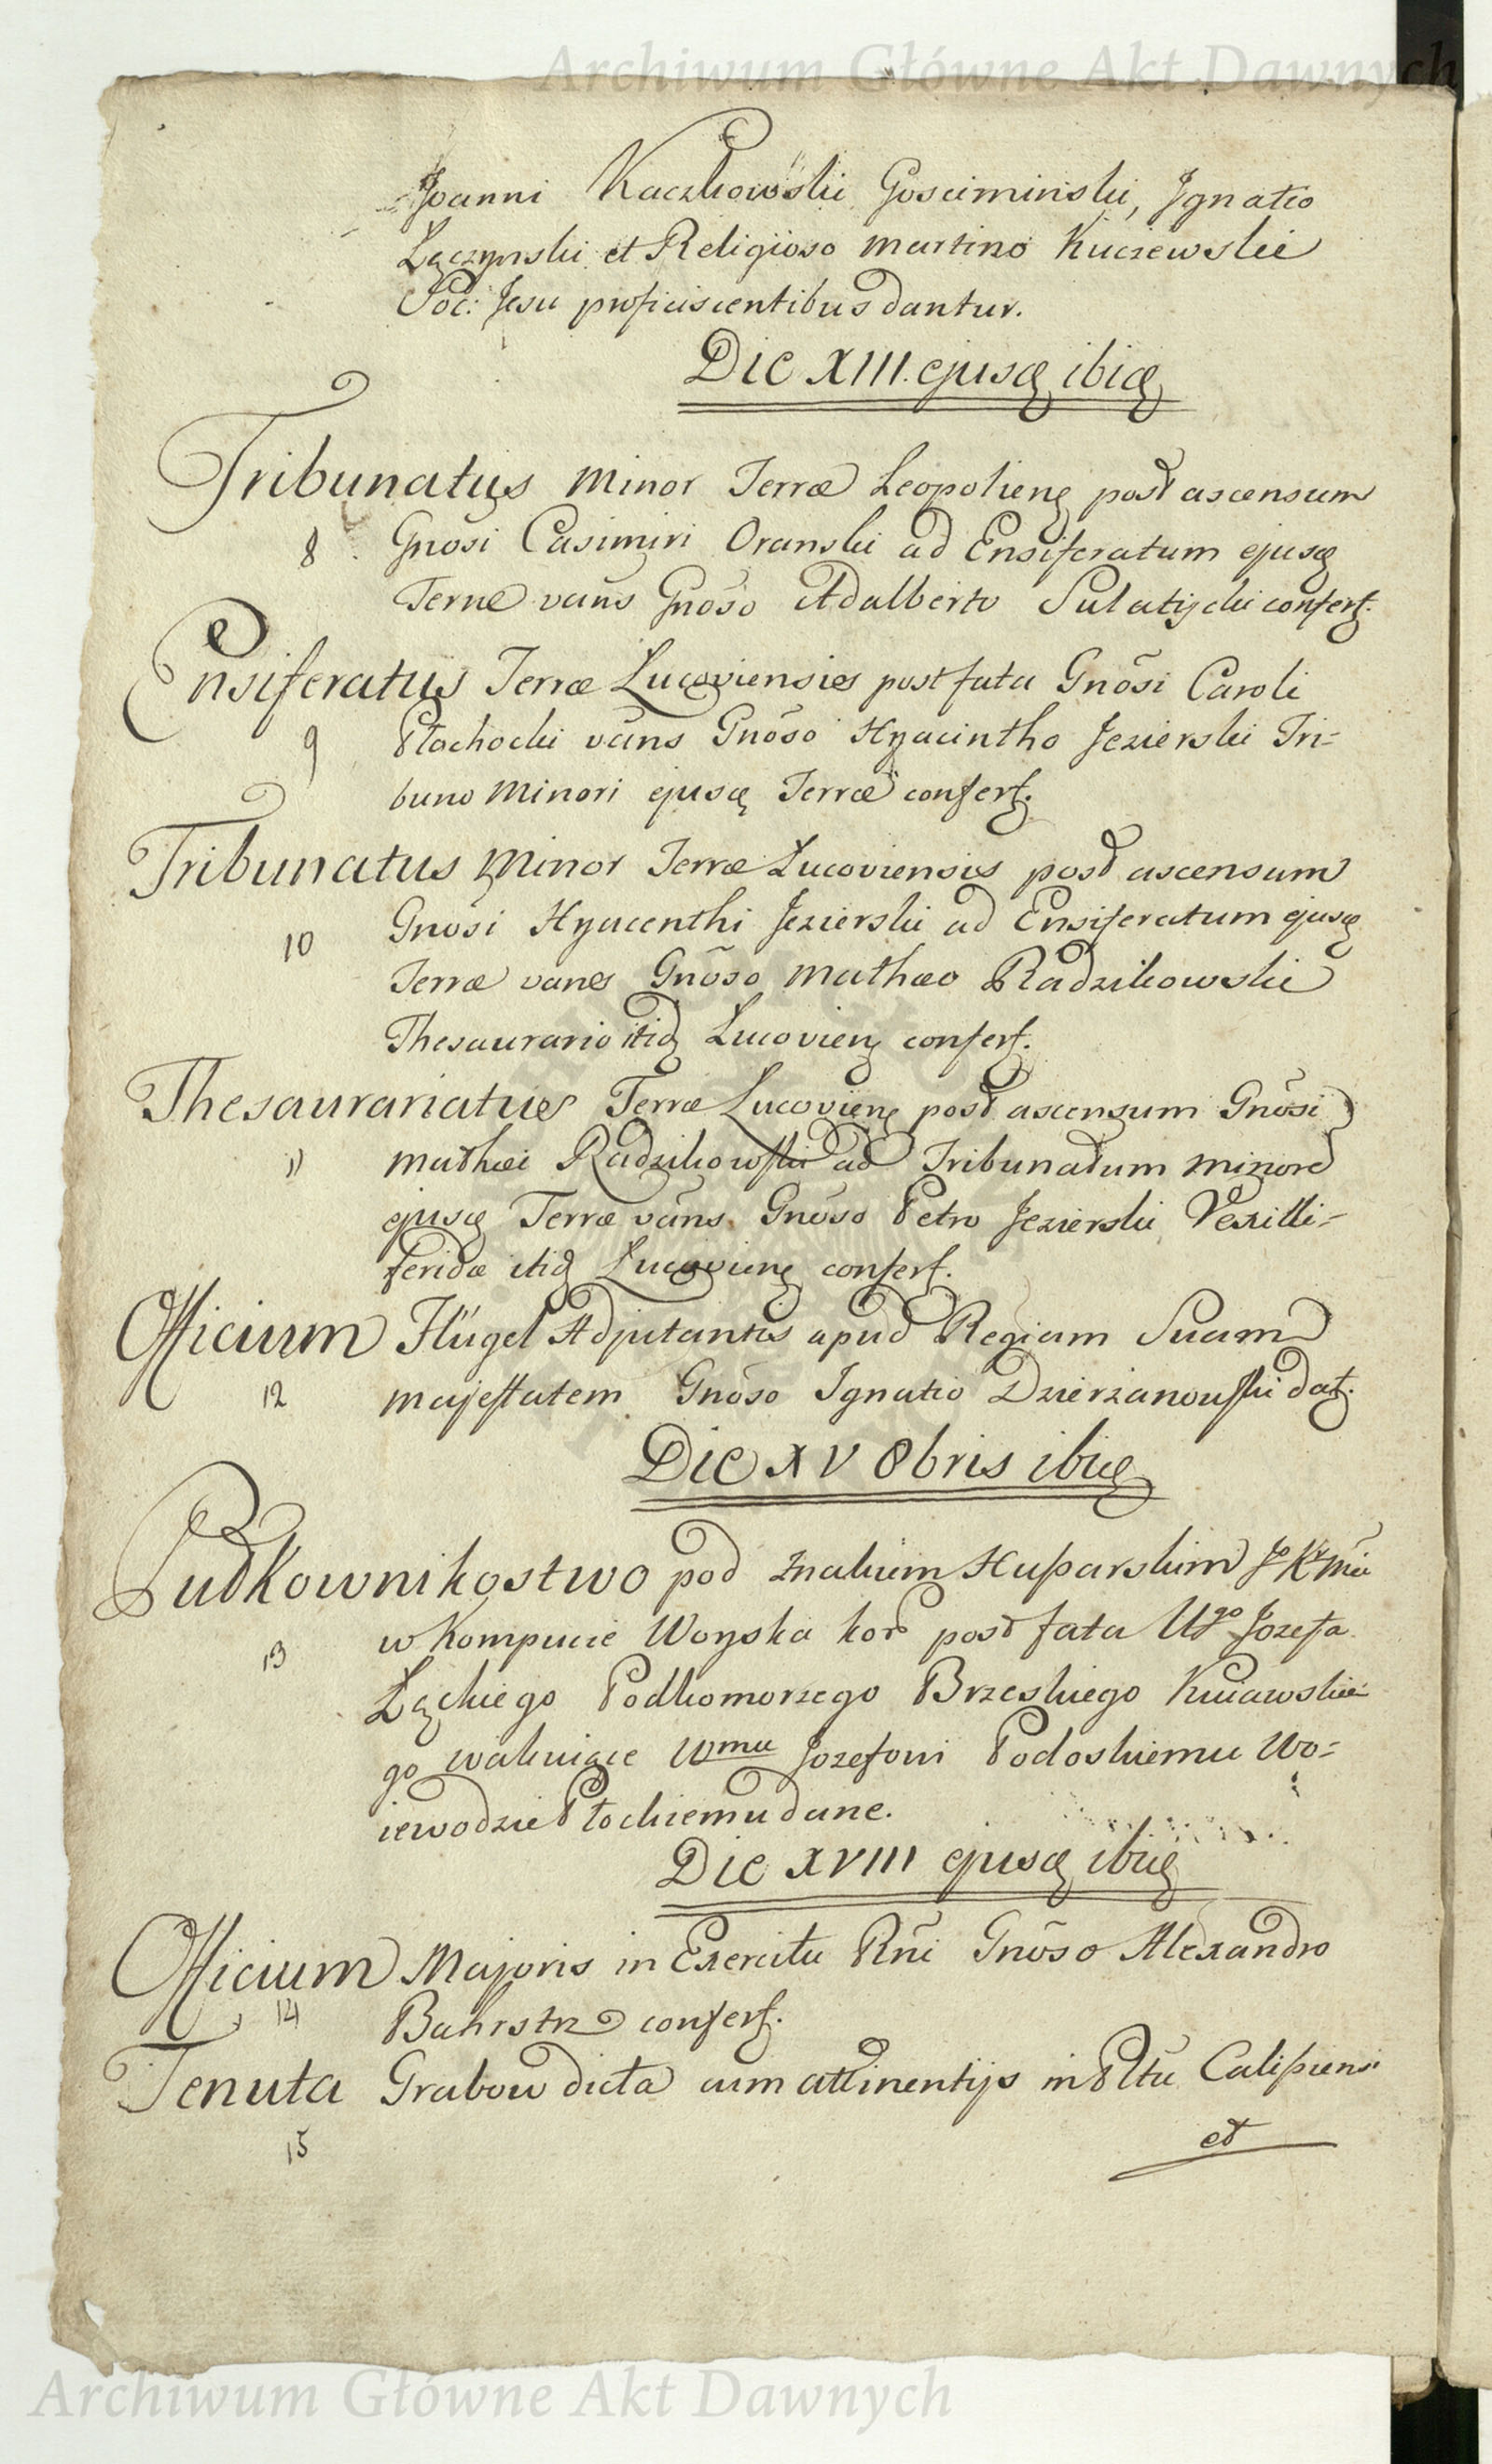 Archiwum Główne Akt Dawnych
Joanni Kaczkowski Gosciminski, Ignatio
Łączynski et Religioso Martino Kuczewski
Soc: Jesu proficiscentibus dantur.
Die XIII. ejusq ibiq
Tribunatus Minor Terræ Leopolienę post ascensum
8 Gnosi Casimiri Oranski ad Ensiferatum ejusq
Terræ vans Gnoso Adalberto Sulatycki conferṫ.
Ensiferatus Terræ Lucoviensis post fata Gnōsi Caroli
9 Płachocki vāns Gnōso Hyacintho Jezierski Tri=
buno Minori ejusq Terræ confert.
Tribunatus Minor Terræ Lucoviensis post ascensum
10 Gnōsi Hyacenthi Jezierski ad Ensiferatum ejusq
Terræ vans Gnōso Mathæo Radzikowski
Thesaurario itidq Lucovienę confert.
Thesaurariatus Terræ Lucovienę post ascensum Gnōsi
11 Mathæi Radzikowski ad Tribunatum minorē
ejusq Terræ vāns Gnōso Petro Jezierski Vexilli=
feridæ itidq Lucovienę confert.
Officium Flügel Adjutantis apud Regiam Suam
12 Majestatem Gnōso Ignatio Dzierzanowski dat.
Die XV 8bris ibiq
Pułkownikostwo pod znakiem Hussarskim Jo Kr Mci
13 w Kompucie Woyska kor post fata Ugo Jozefa
Łąckiego Podkomorzego Brzeskiego Kuiawskie
go wakuiące Wmu Jozefowi Podoskiemu Wo=
iewodzie Płockiemu dane.
Die XVIII ejusq ibiq
Officium Majoris in Exercitu Rni Gnōso Alexandro
14 Bahrstz confert.
Tenuta Grabow dicta cum attinentijs in Pltu Calissiensi
15 et
Archiwum Główne Akt Dawnych